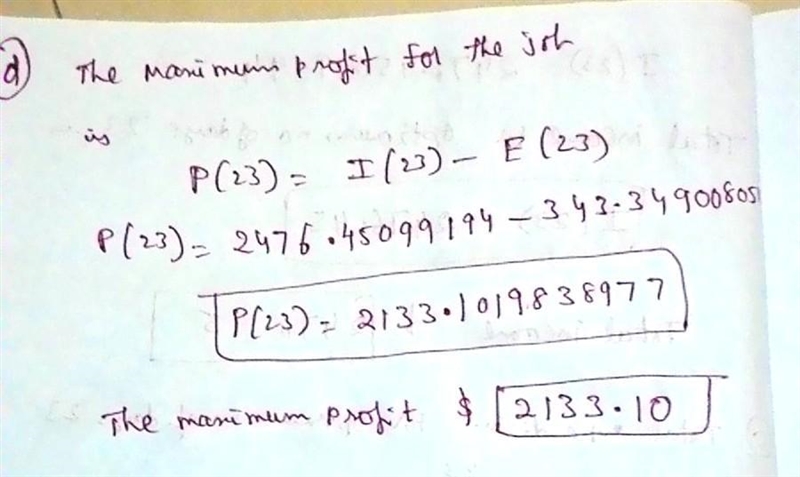 d) The maximum profit for the job
is
P(23) = I(23) - E(23)
P(23) = 2476.45099194 - 343.349008051
P(23) = 2133.1019838977
The maximum profit $ 2133.10